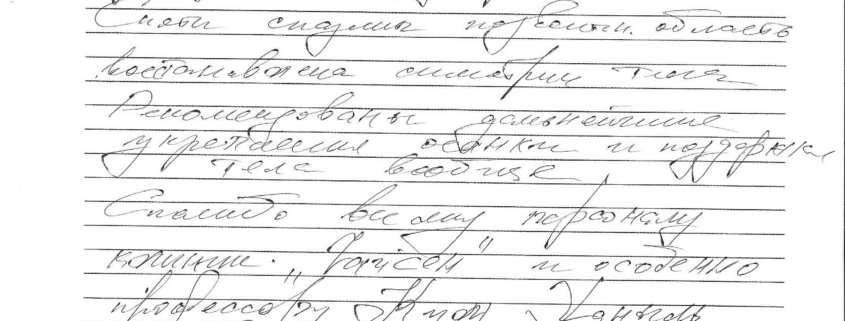 Сняты спазмы позвоночн. область
восстановлена симетрия тела
Рекомендованы дальнейшие
укрепления осанки и поддержка
тела вообще
Спасибо всему персоналу
клиники и особенно
профессору Хангыль